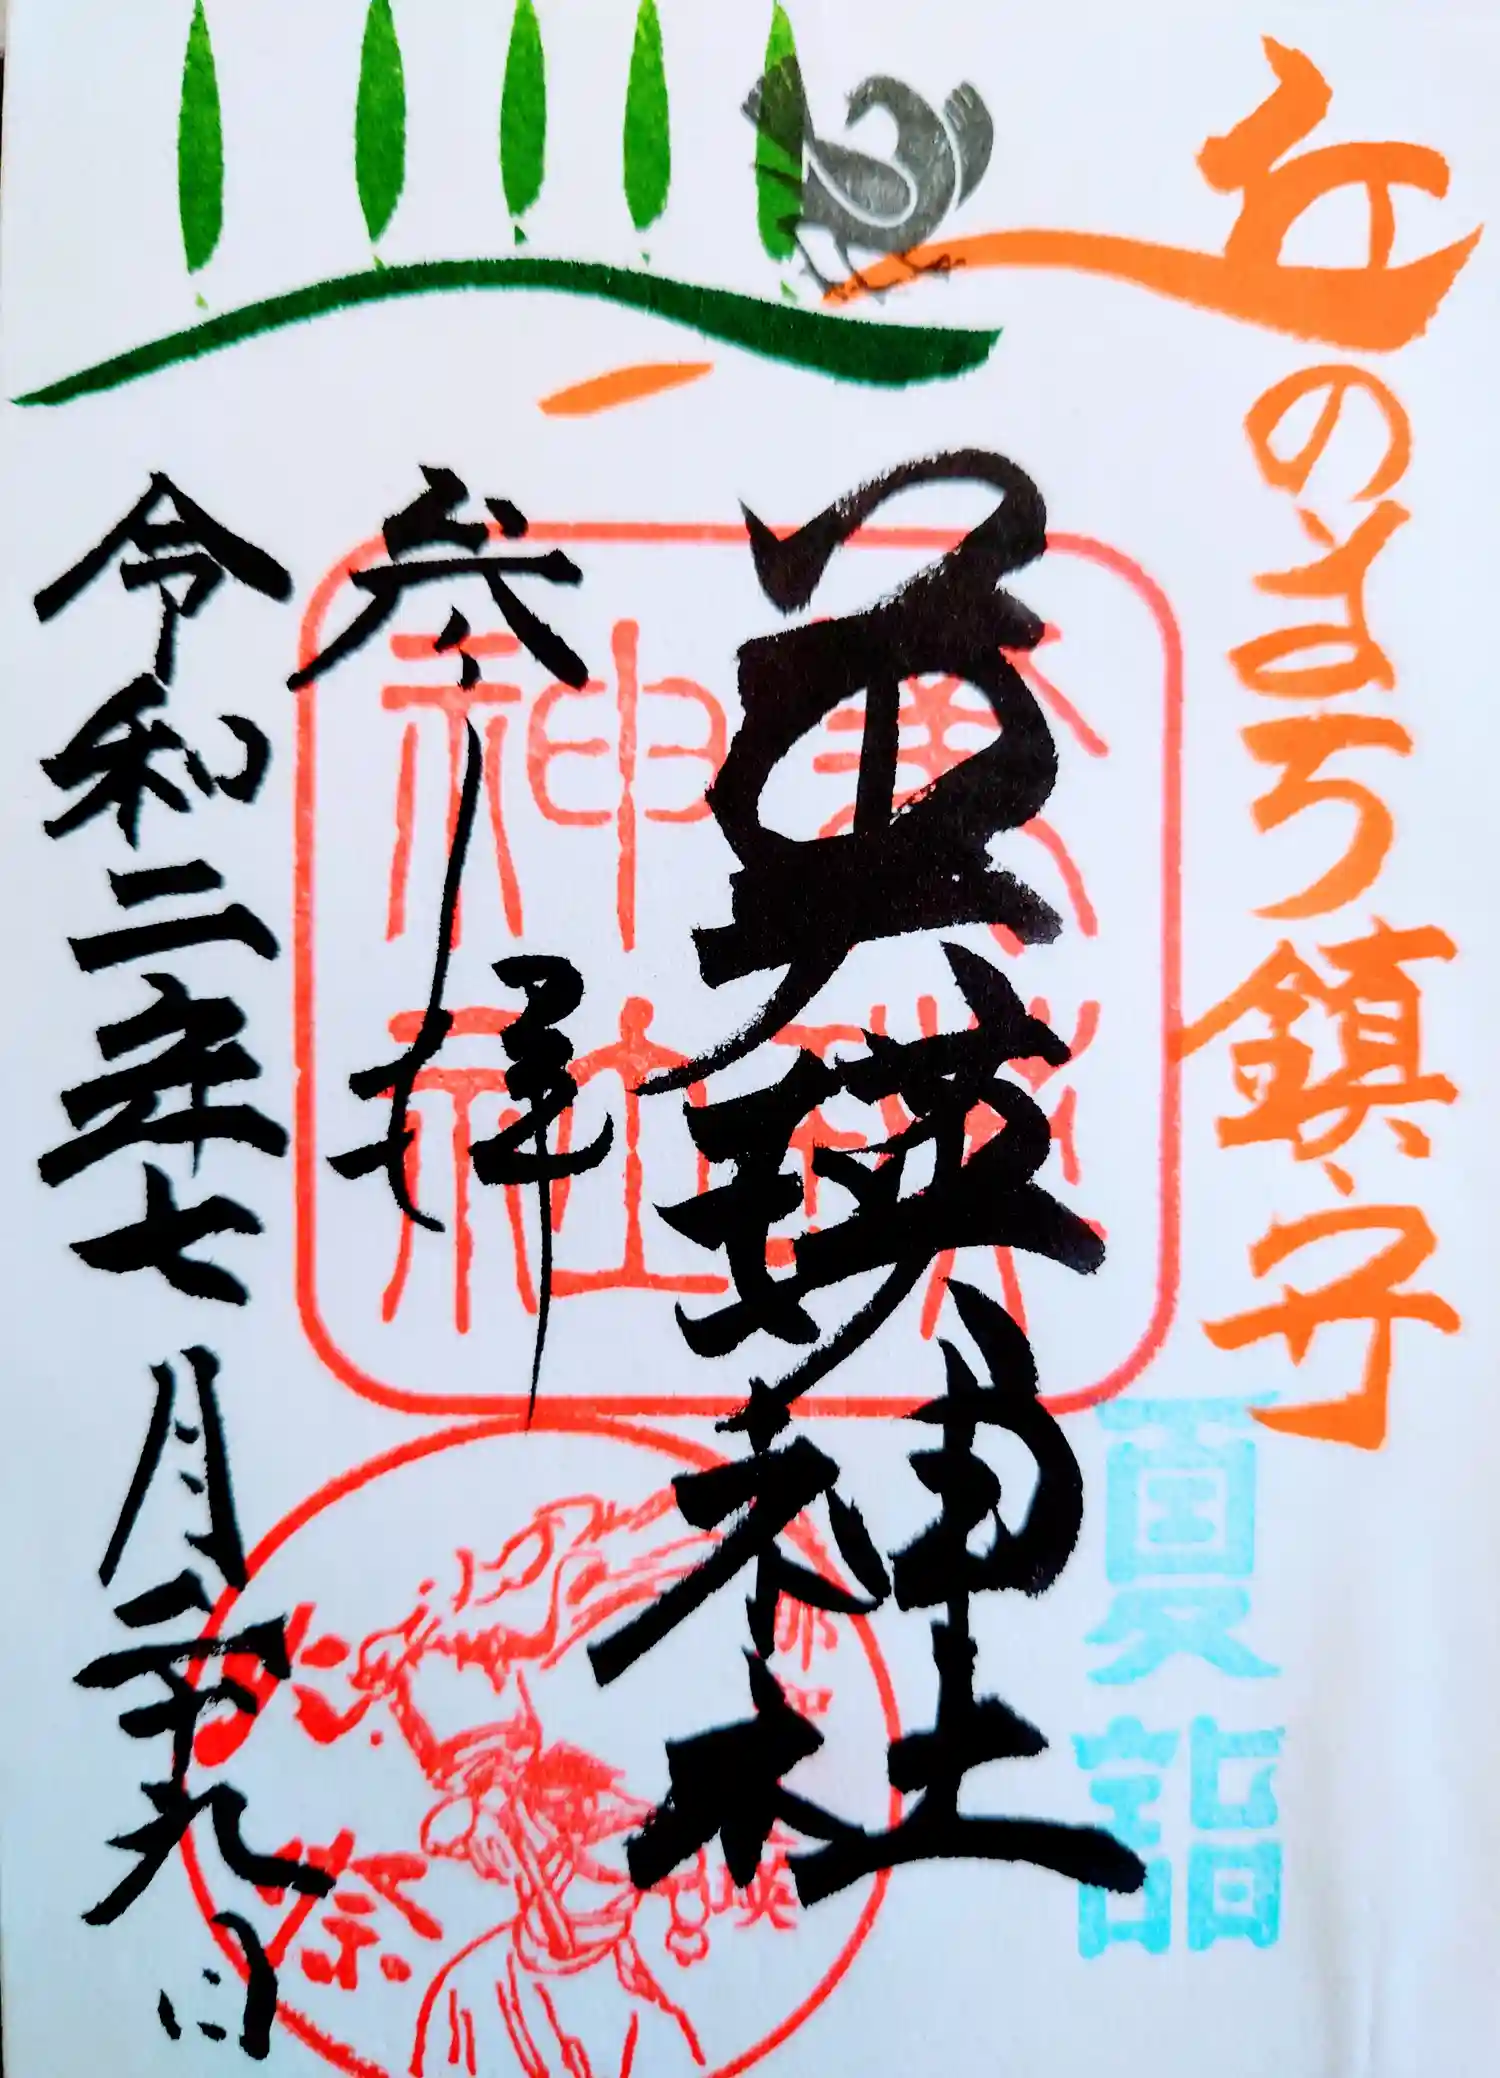 丘のまち鎮守
夏詣
美瑛神社
美瑛
神社
参拝
火祭
令和二年七月二十九日